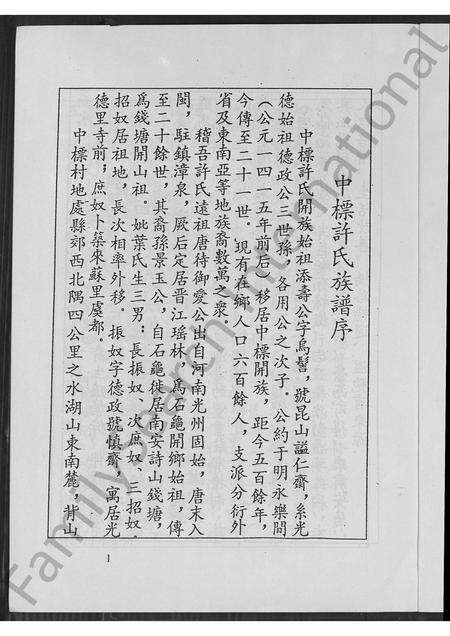 中標許氏族譜序
中標許氏開族始祖添壽公字烏髻，號昆山謚仁齋，系光
德始祖德政公三世孫，各用公之次子。公約于明永樂間
（公元一四一五年前后）移居中標開族，距今五百餘年，
今傳至二十一世。現有在鄉人口六百餘人，支派分衍外
省及東南亞等地族裔數萬之衆。
稽吾許氏遠祖唐待御愛公出自河南光州固始，唐末入
閩，駐鎮漳泉，厥后定居晋江瑶林，爲石龜開鄉始祖，傳
至二十餘世，其裔孫景玉公，自石龜徙居南安詩山錢塘，
爲錢塘開山祖。妣葉氏生三男：長振奴、次庶奴、三招奴。
招奴居祖地，長次相率外移。振奴字德政號慎齋，寓居光
德里寺前，庶奴卜築來蘇里虞都。
中標村地處縣郊西北隅四公里之水湖山東南麓，背山
1
FamilySearch International